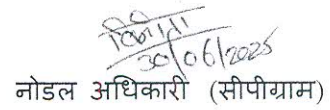 विनीता
30/06/2025
नोडल अधिकारी (सीपीग्राम)